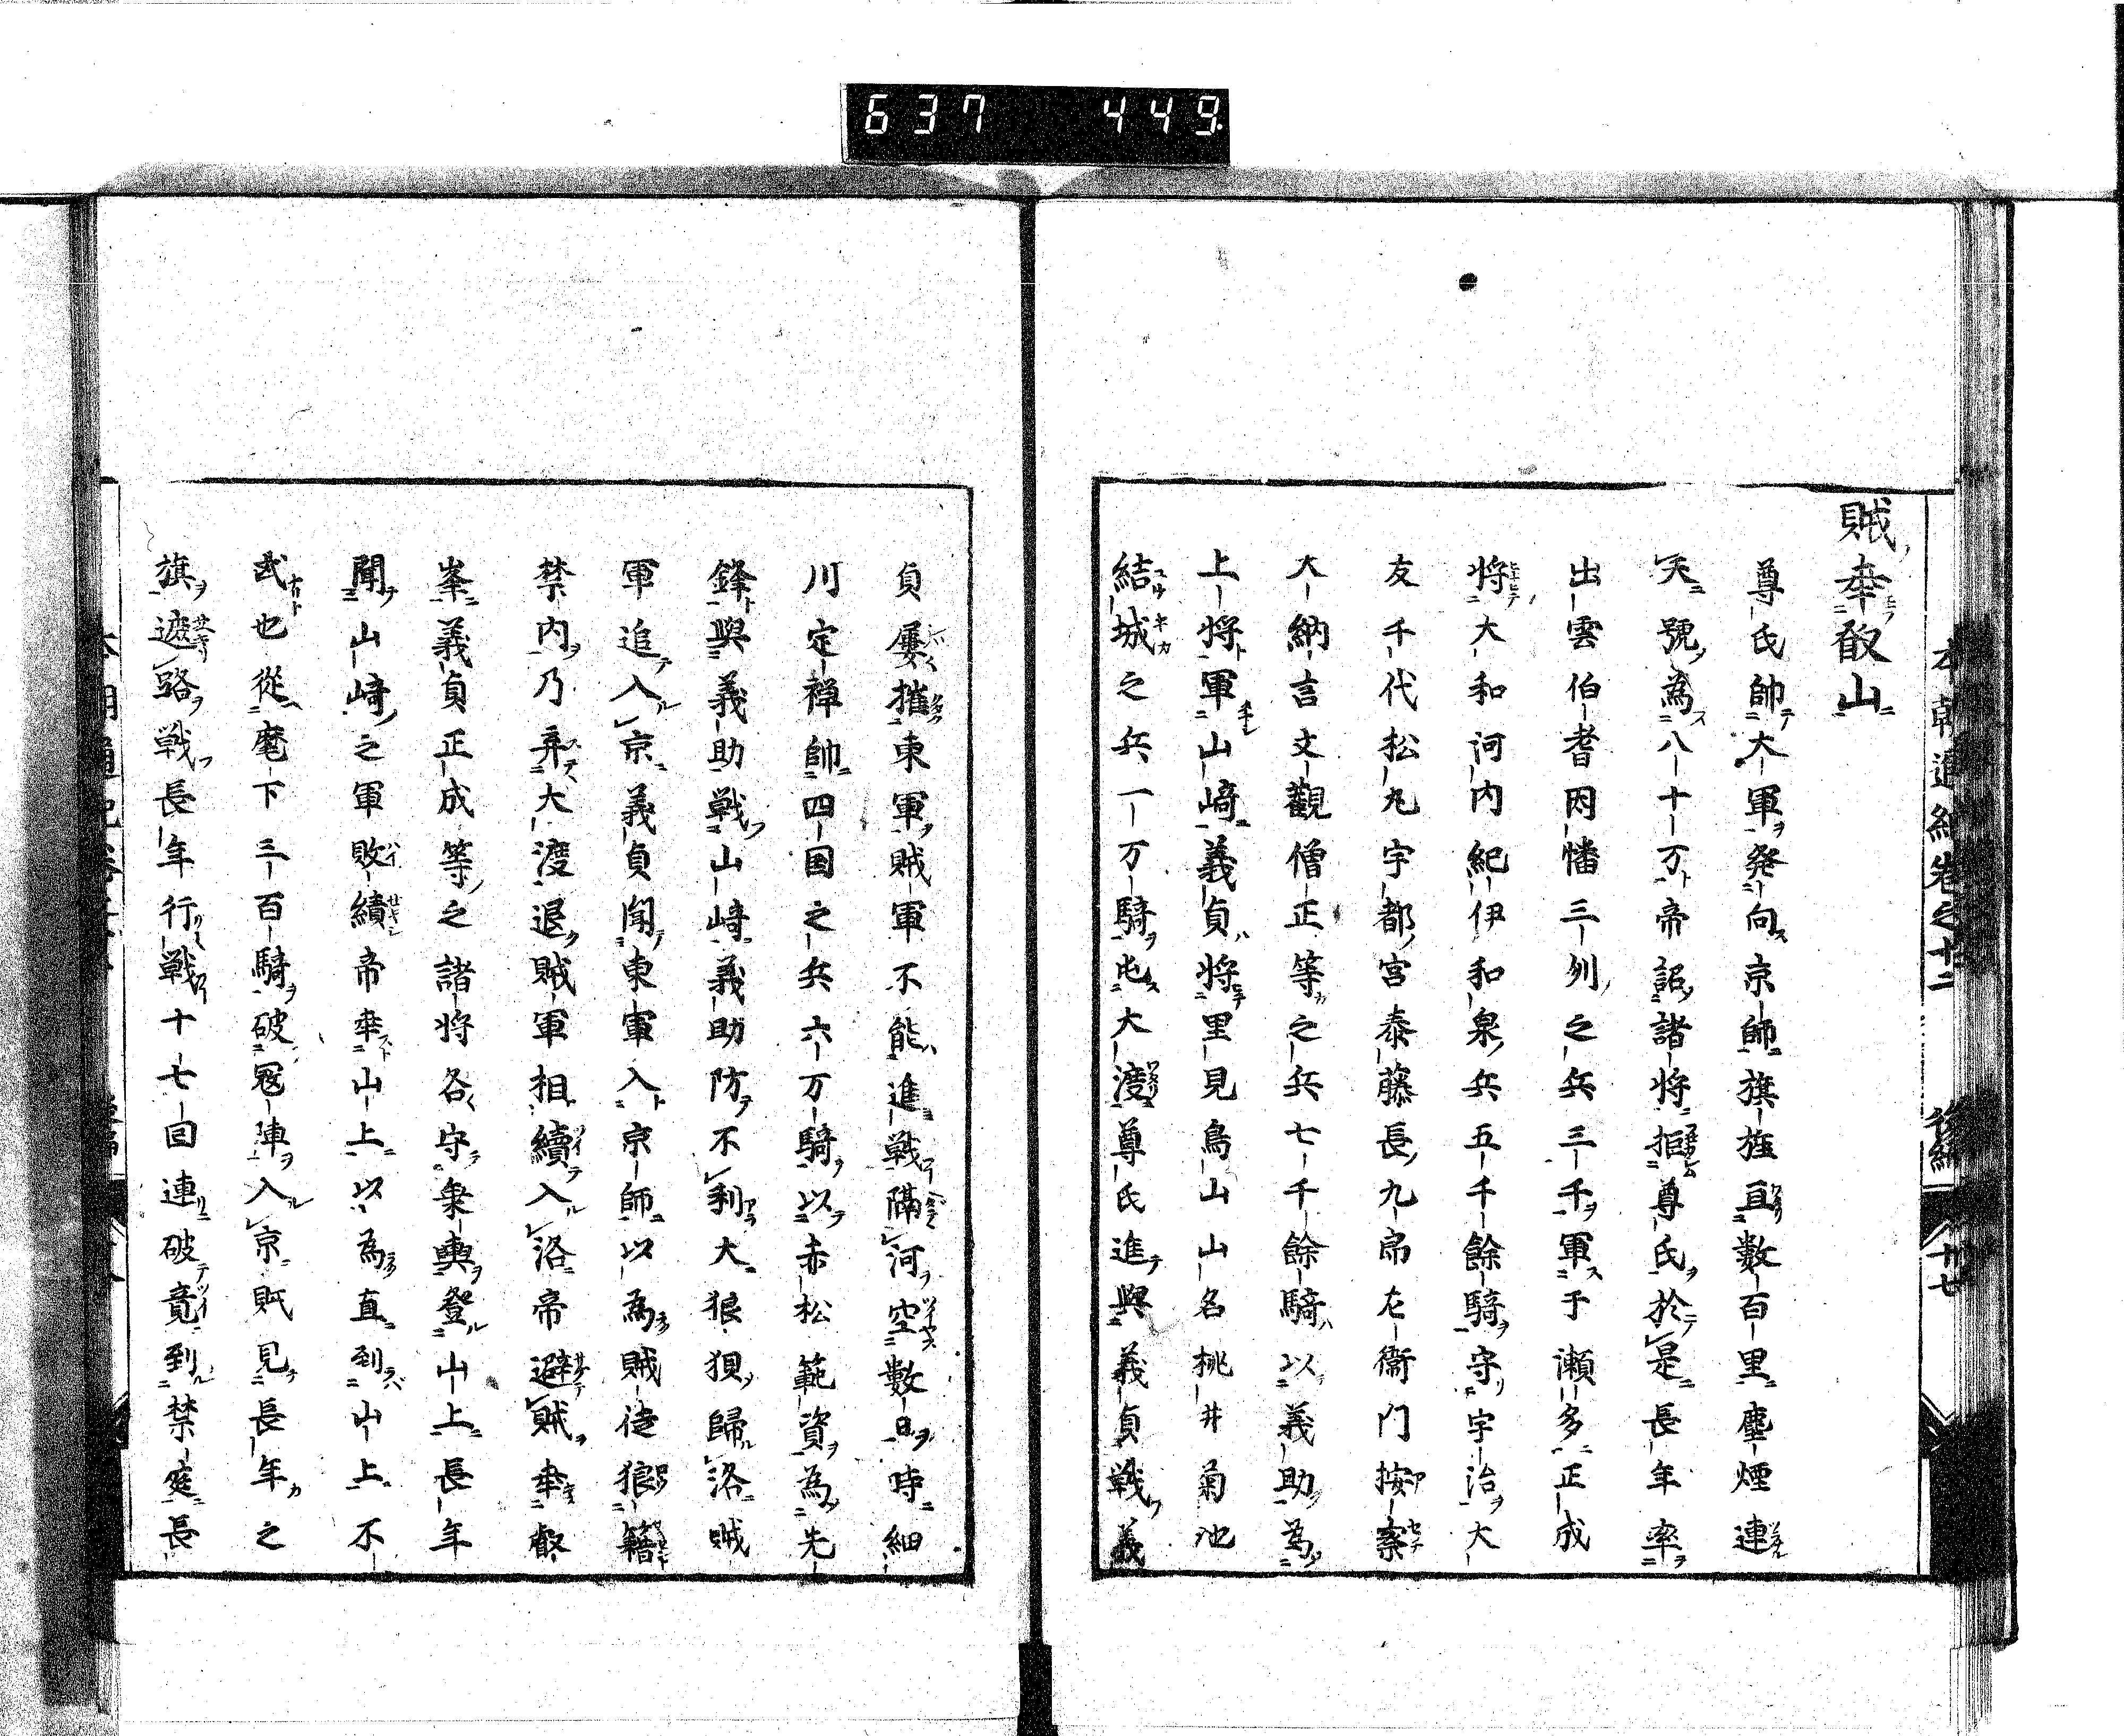 637 449
本朝通紀卷之十二 後編 廿七
賊幸叡山
尊氏帥大軍発向京師旗旌亘數百里塵煙連
天號為八十万帝詔諸将拒尊氏於是長年率
出雲伯耆因幡三州之兵三千軍于瀬多正成
将大和河内紀伊和泉兵五千餘騎守宇治大
友千代松丸宇都宮泰藤長九郎左衞門按察
大納言文觀僧正等之兵七千餘騎以義助為
上将軍山﨑義貞将里見鳥山山名桃井菊池
結城之兵一万騎屯大渡尊氏進與義貞戦義
貞屢摧東軍賊軍不能進戦隔河空數日時細
川定禅帥四国之兵六万騎以赤松範資為先
鋒與義助戦山﨑義助防不利大狼狽歸洛賊
軍追入京義貞聞東軍入京師以為賊徒狼籍
禁内乃弃大渡退賊軍相續入洛帝避賊幸叡
峯義貞正成等之諸将各守衆輿登山上長年
聞山﨑之軍敗績帝幸山上以為直到山上不
武也從麾下三百騎破冦陣入京賊見長年之
旗遮路戦長年行戦十七回連破竟到禁庭長